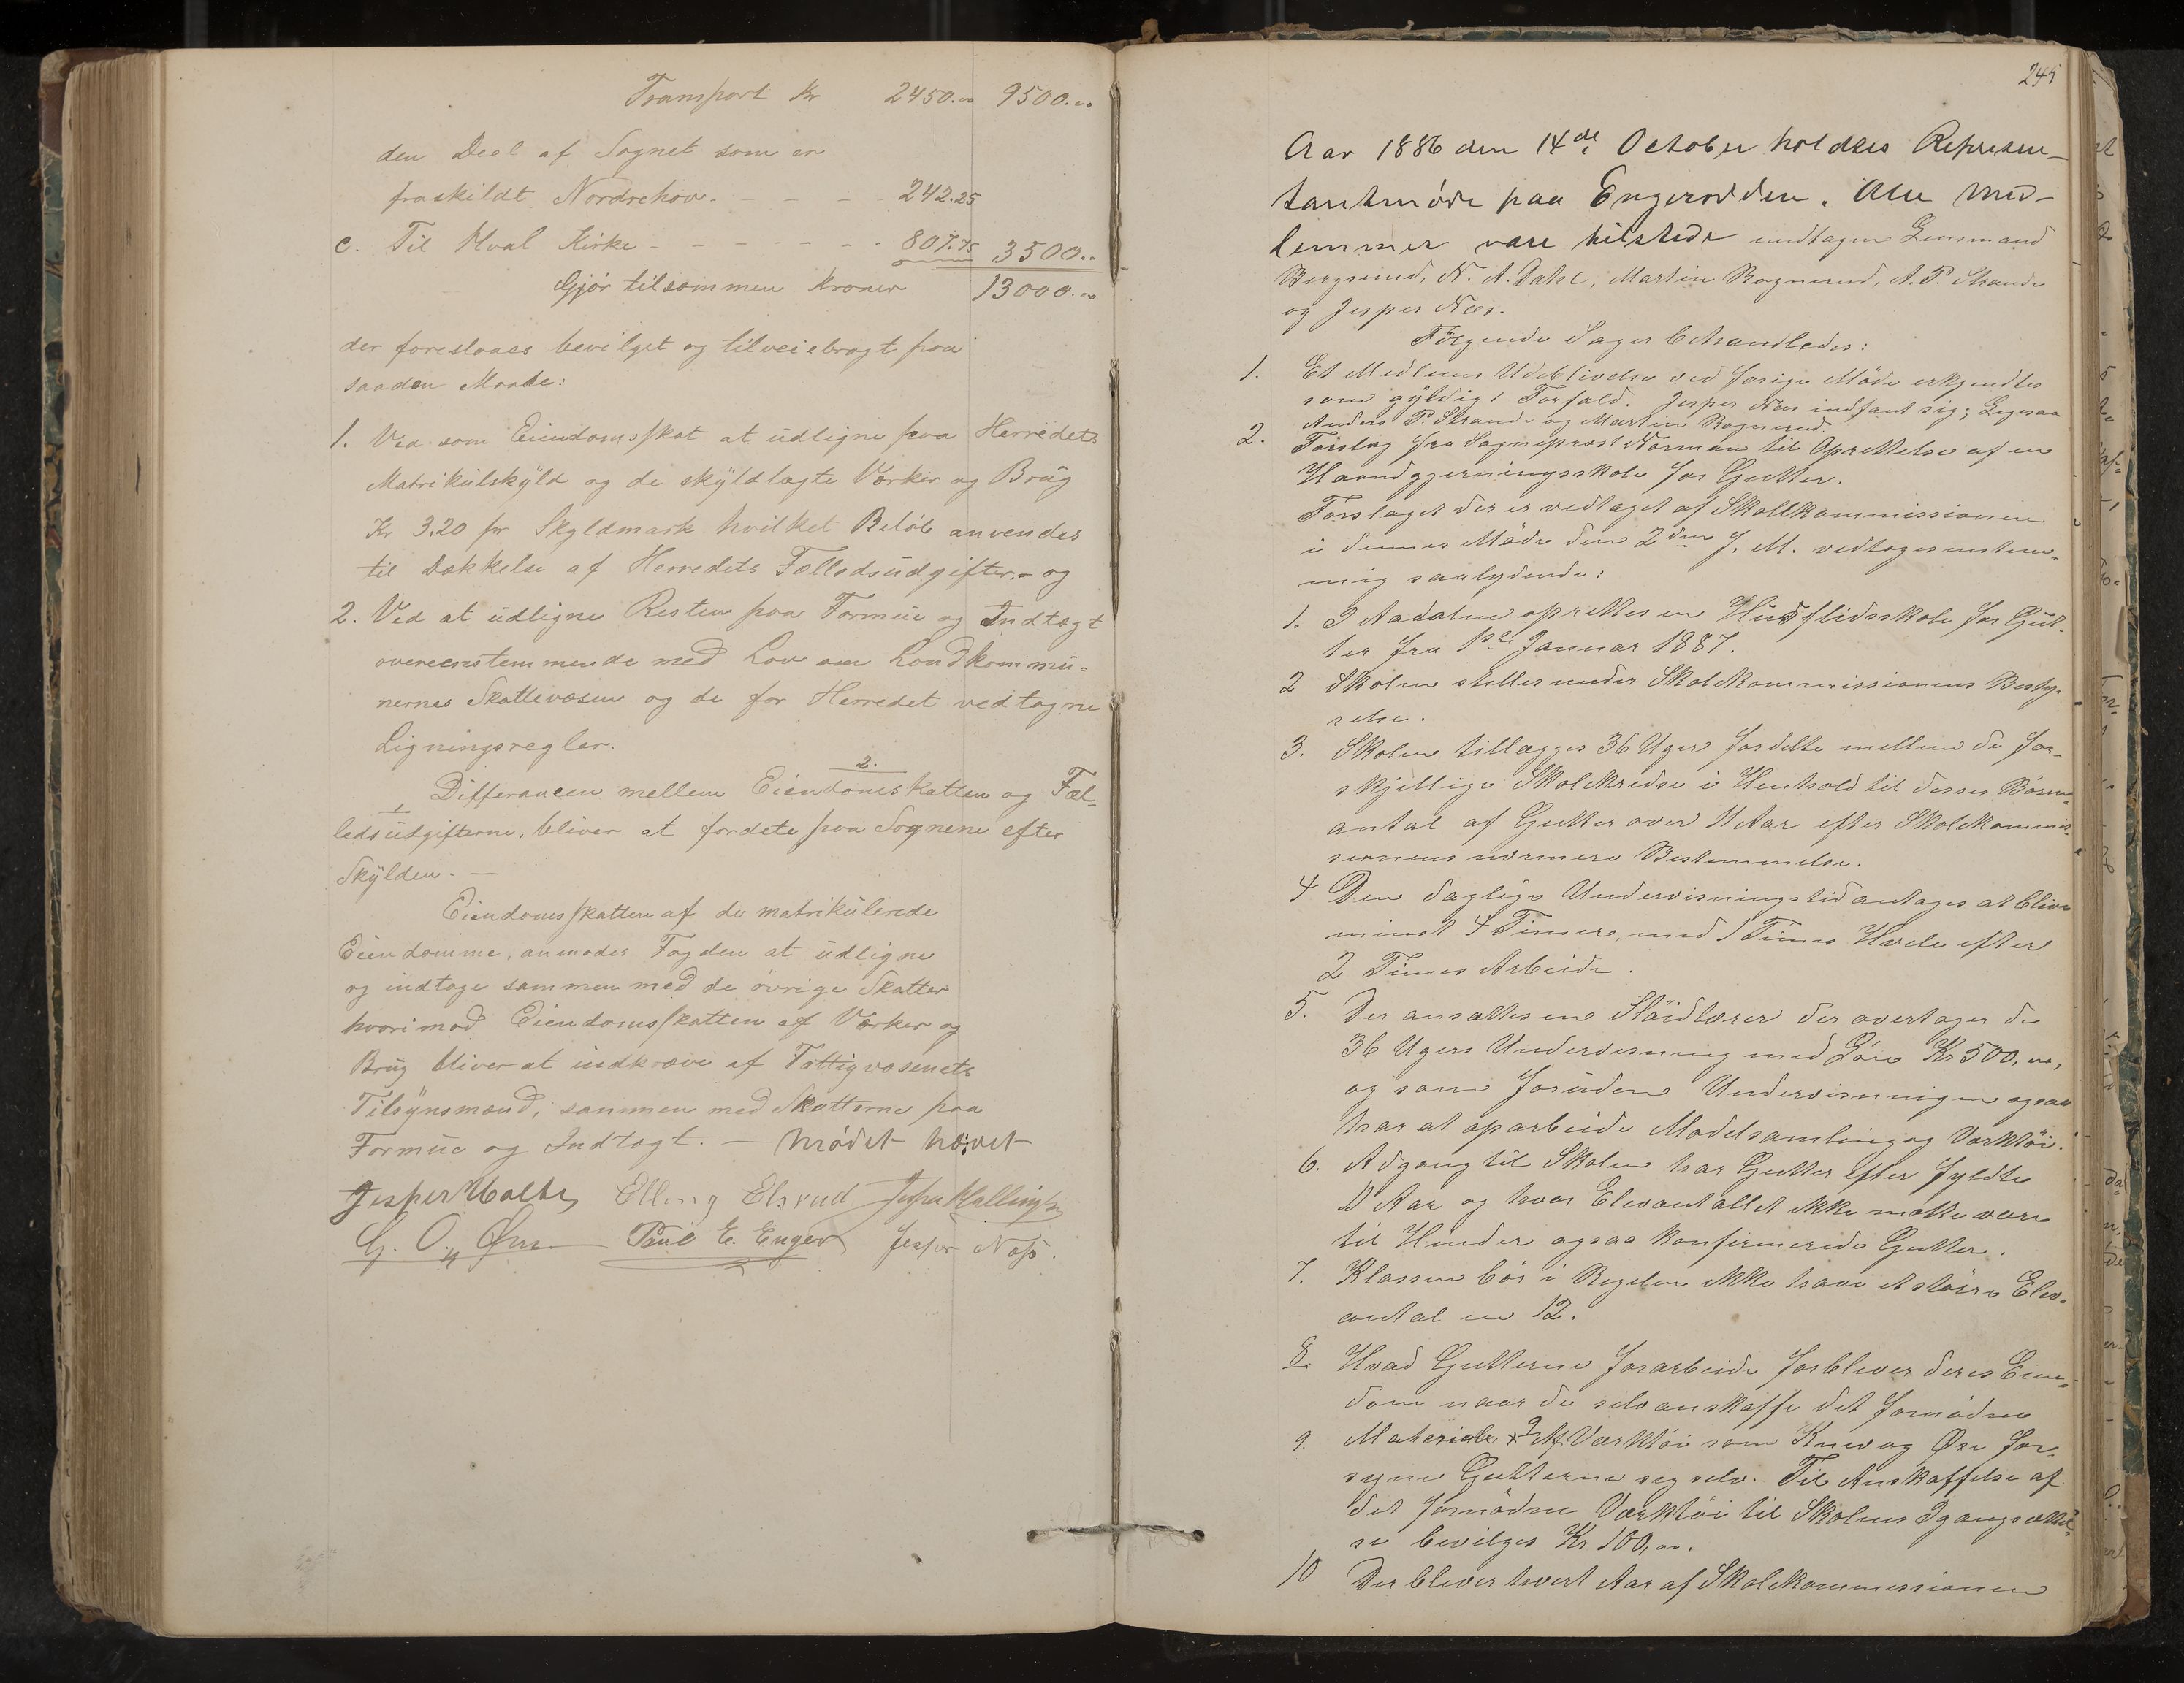 Transport Kr 2450.00 9500.00
den Deel af Sognet som er
fraskildt Nordrehov - - - 242.25
c. Til Hval Kirke - - - - - - 807.75 3500..
Gjør tilsammen Kroner 13000.00
der foreslaaes bevilget og tilveiebragt paa
saadan Maade:
1. Ved som Eiendomsskat at udligne paa Herredets
Matrikulskyld og de skyldlagte Værker og Brug
Kr 3.20 pr Skyldmark hvilket Beløb anvendes
til Dækkelse af Herredets Fælledsudgifter,- og
2. Ved at udligne Resten paa Formue og Indtægt
overeenstemmende med Lov om Landkommu-
nernes Skattevæsen og de for Herredet vedtagne
Ligningsregler.
2.
1 Differancen mellem Eiendomskatten og Fæl-
ledsudgifterne, bliver at fordele paa Sognene efter
Skylden. —
Eiendomsskatten af de matrikulerede
Eiendomme, anmodes Fogden at udligne
og indtage sammen med de øvrige Skatter
hvorimod Eiendomsskatten af Værker og
Brug bliver at indkræve af Fattigvæsenets
Tilsynsmænd, sammen med Skatterne paa
Formue og Indtægt. — Mødet hævet
Jesper Elling Elsrud
G. O. Øen Paul E. Enger Jesper Næss.
245
Aar 1886 den 14de October holdtes Represen-
tantmøde paa Engerodden. Alle Med-
lemmer vare tilstede undtagen Lensmand
Bergsund, N. A. Dahl, Martin Rognerud, A. P. Strande
og Jesper Næs.
Følgende Sager behandledes:
1. Et Medlems Udeblivelse ved forige Møde erkjendtes
som gyldigt Forfald. Jesper Næs indfant sig; Ligesaa
Anders P. Strande og Martin Rognerud.
2. Forslag fra Sogneprest Norman til Oprettelse af en
Haandgjerningsskole for Gutter.
Forslaget der er vedtaget af Skolekommissionen
i dennes Møde den 2den f. M. vedtoges enstem-
mig saalydende:
1. I Aadalen oprettes en Husflidsskole for Gut-
ter fra 1ste Januar 1887.
2 Skolen stilles under Skolekommissionens Besty-
relse.
3. Skolen tillægges 36 Uger fordelte mellem de for-
skjellige Skolekredse i Henhold til disses Børne-
antal af Gutter over 11 Aar efter Skolekommis-
sionens nærmere Bestemmelse.
4 Den daglige Undervisningstid antages at blive
minst 4 Timer, med 1 Times Hvile efter
2 Times Arbeide.
5. Der ansættes en Sløidlærer der overtager de
36 Ugers Undervisning med Løn Kr 500,00,
og som foruden Undervisningen ogsaa
har at oparbeide Modelsamling og Værktøi.
6. Adgang til Skolen har Gutter efter fyldte
11 Aar og hvor Elevantallet ikke maatte være
til Hinder ogsaa konfirmerede Gutter.
7. Klassen bør i Regelen ikke have et større Elev-
antal en 12.
8. Hvad Gutterne forarbeide forbliver deres Eien-
dom naar de selv anskaffe det fornødne
9. Materiale. Af Værktøi som Kniv og Øxe for-
syne Gutterne sig selv. Til Anskaffelse af
det fornødne Værktøi til Skolens Igangsættel-
se bevilges Kr 100,00.
10 Der bliver hvert Aar af Skolekommissionen